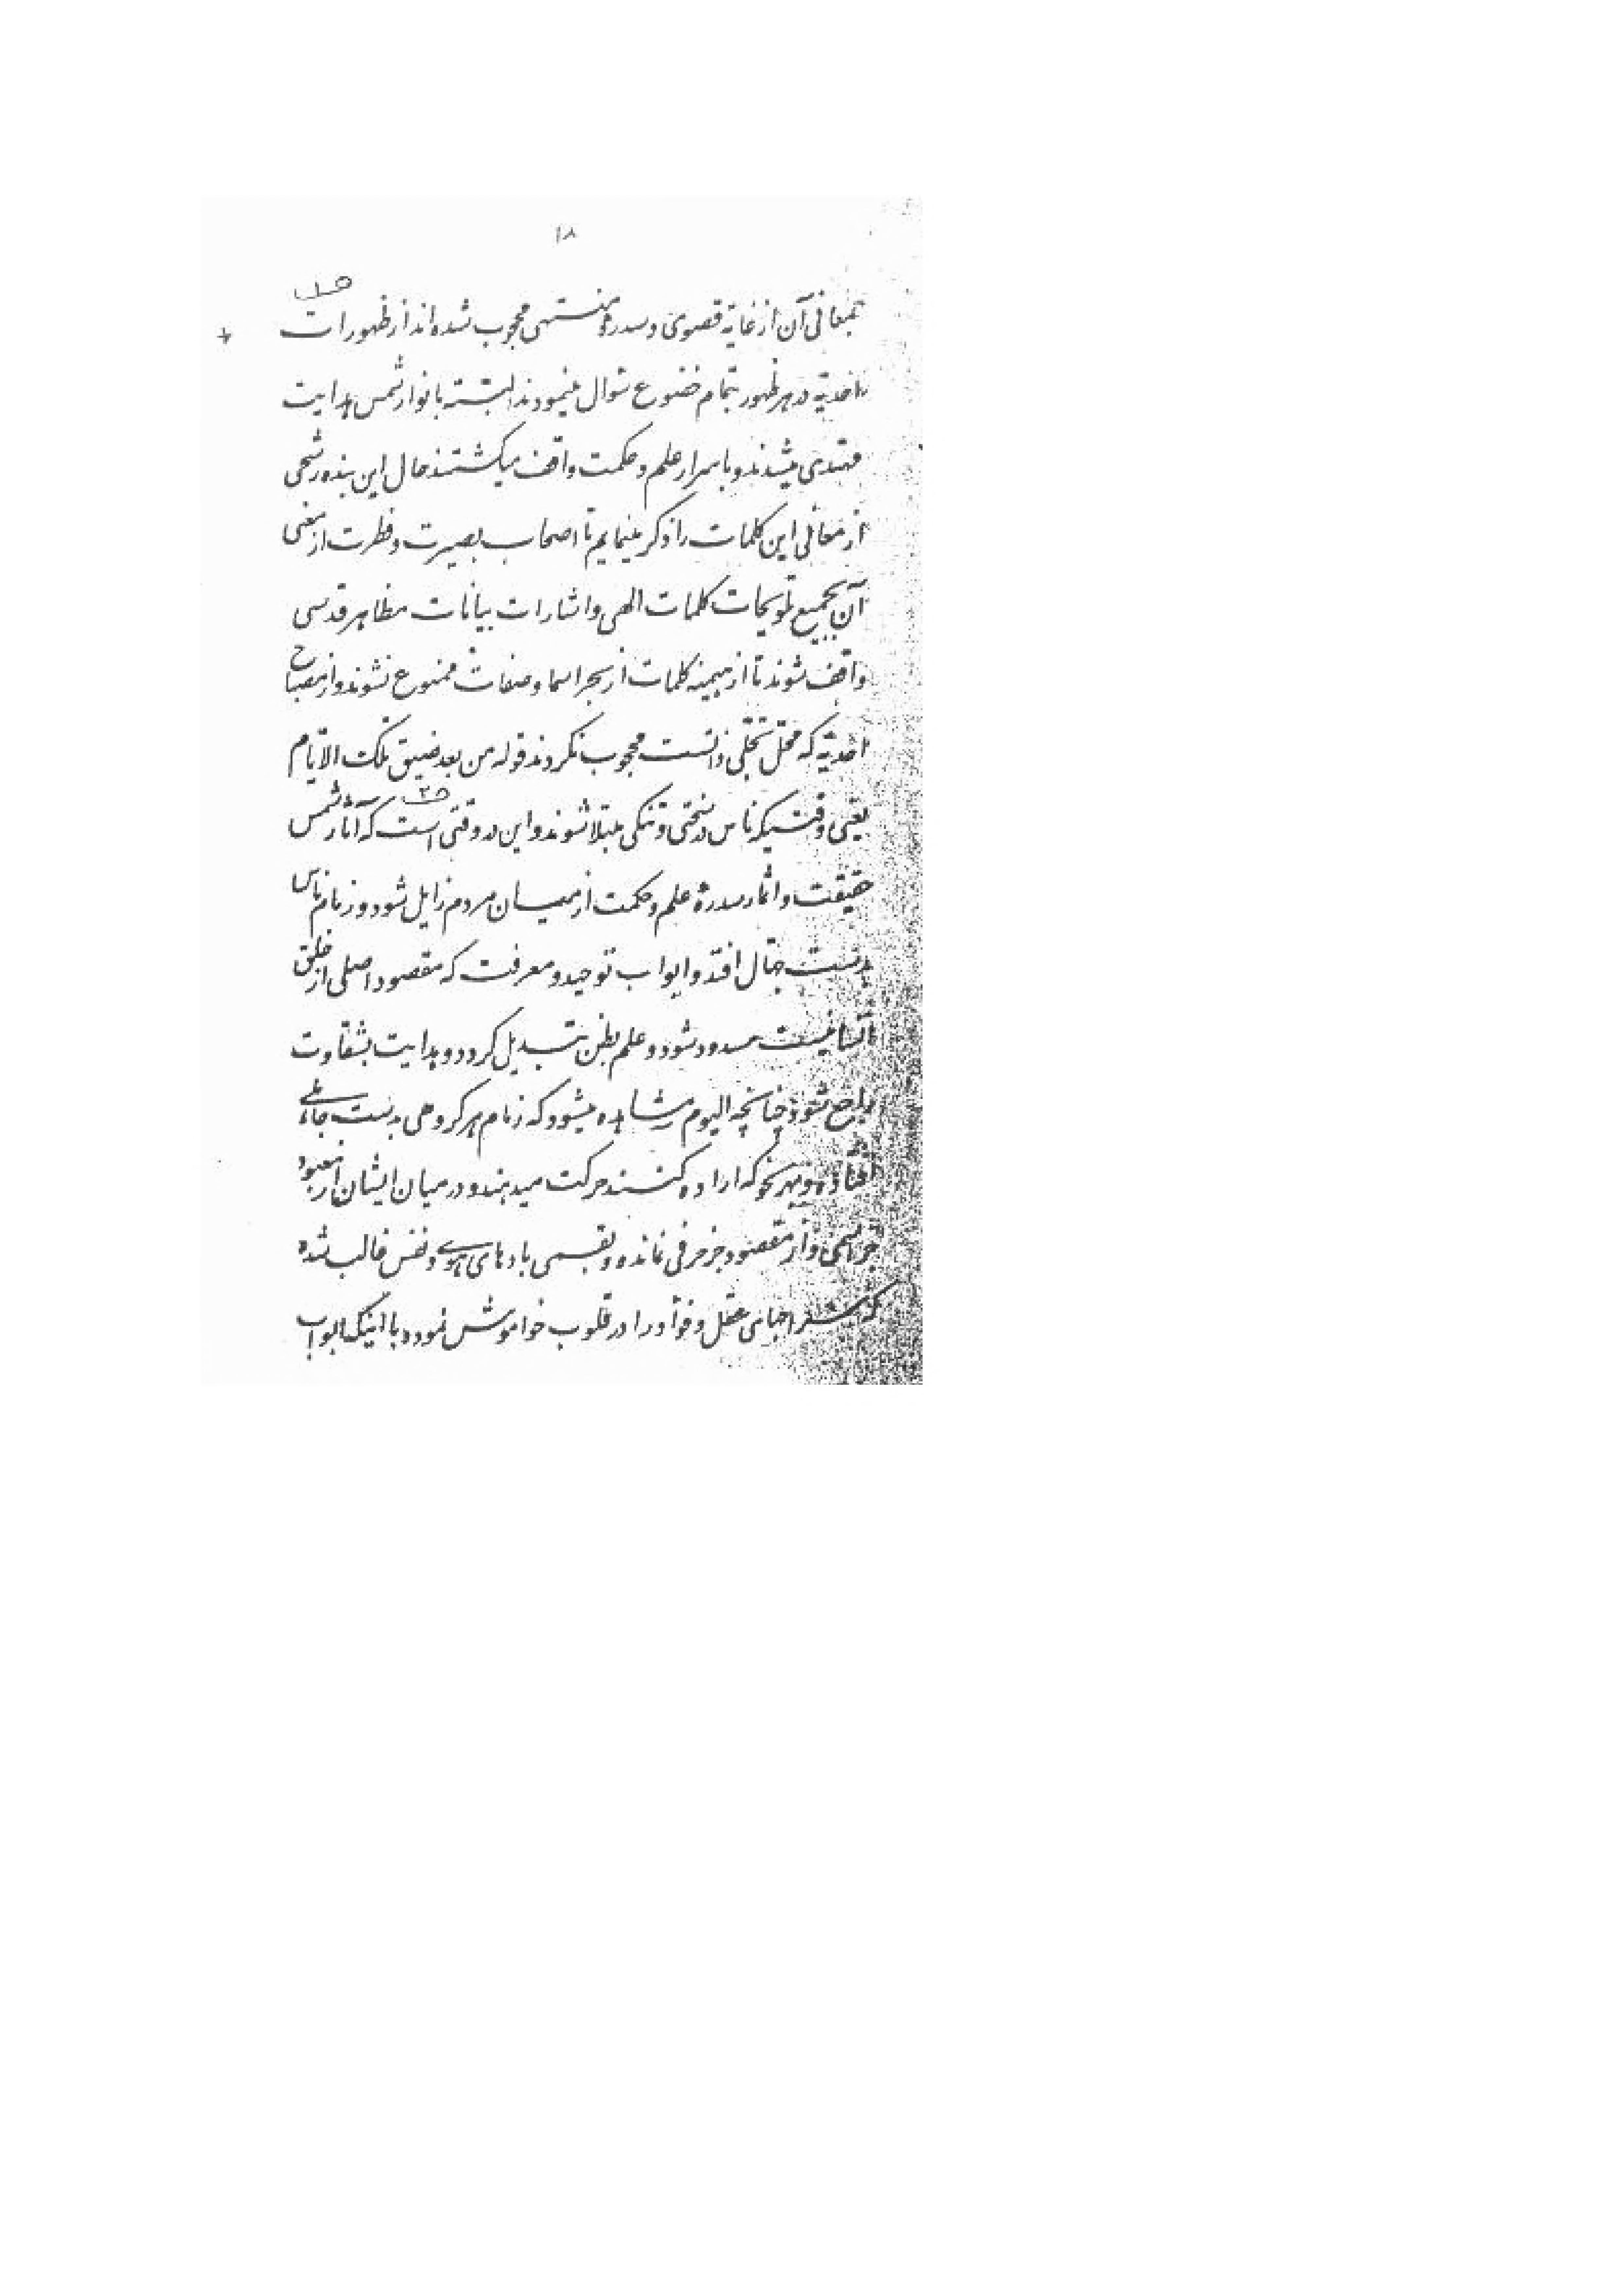 ۱۸
بمعانی آن از غایة قصوی و سدرهٔ منتهی محجوب شده‌اند از ظهورات
احدیّه در هر ظهور بتمام خضوع سؤال مینمودند البتّه بانوار شمس هدایت
مهتدی میشدند و باسرار علم و حکمت واقف میکشتند حال این بنده رشحی
از معانی این کلمات را ذکر مینمایم تا اصحاب بصیرت و فطرت از معنی
آن بجمیع تلویحات کلمات الهی و اشارات بیانات مظاهر قدسی
واقف شوند تا از هیمنه کلمات از بحر اسما و صفات ممنوع نشوند و از مصباح
احدیّه که محلّ تجلّی ذاتست محجوب نکردند قوله من بعد ضیق تلک الایّام
یعنی وقتیکه ناس در سختی و تنکی مبتلا شوند و این در وقتی است که آثار شمس
حقیقت و اثمار سدرهٔ علم و حکمت از میان مردم زایل شود و زمام ناس
بدست جهّال افتد و ابواب توحید و معرفت که مقصود اصلی از خلق
انسانیست مسدود شود و علم بظن تبدیل کردد و هدایت بشقاوت
راجع شود چنانچه الیوم مشاهده میشود که زمام هر کروهی بدست جاهلی
افتاده و بهر نحو که اراده کنند حرکت میدهند و در میان ایشان از معبود
جز اسمی و از مقصود جز حرفی نمانده و بقسمی بادهای هوی و نفس غالب شده
که سراجهای عقل و فؤاد را در قلوب خاموش نموده با اینکه ابواب